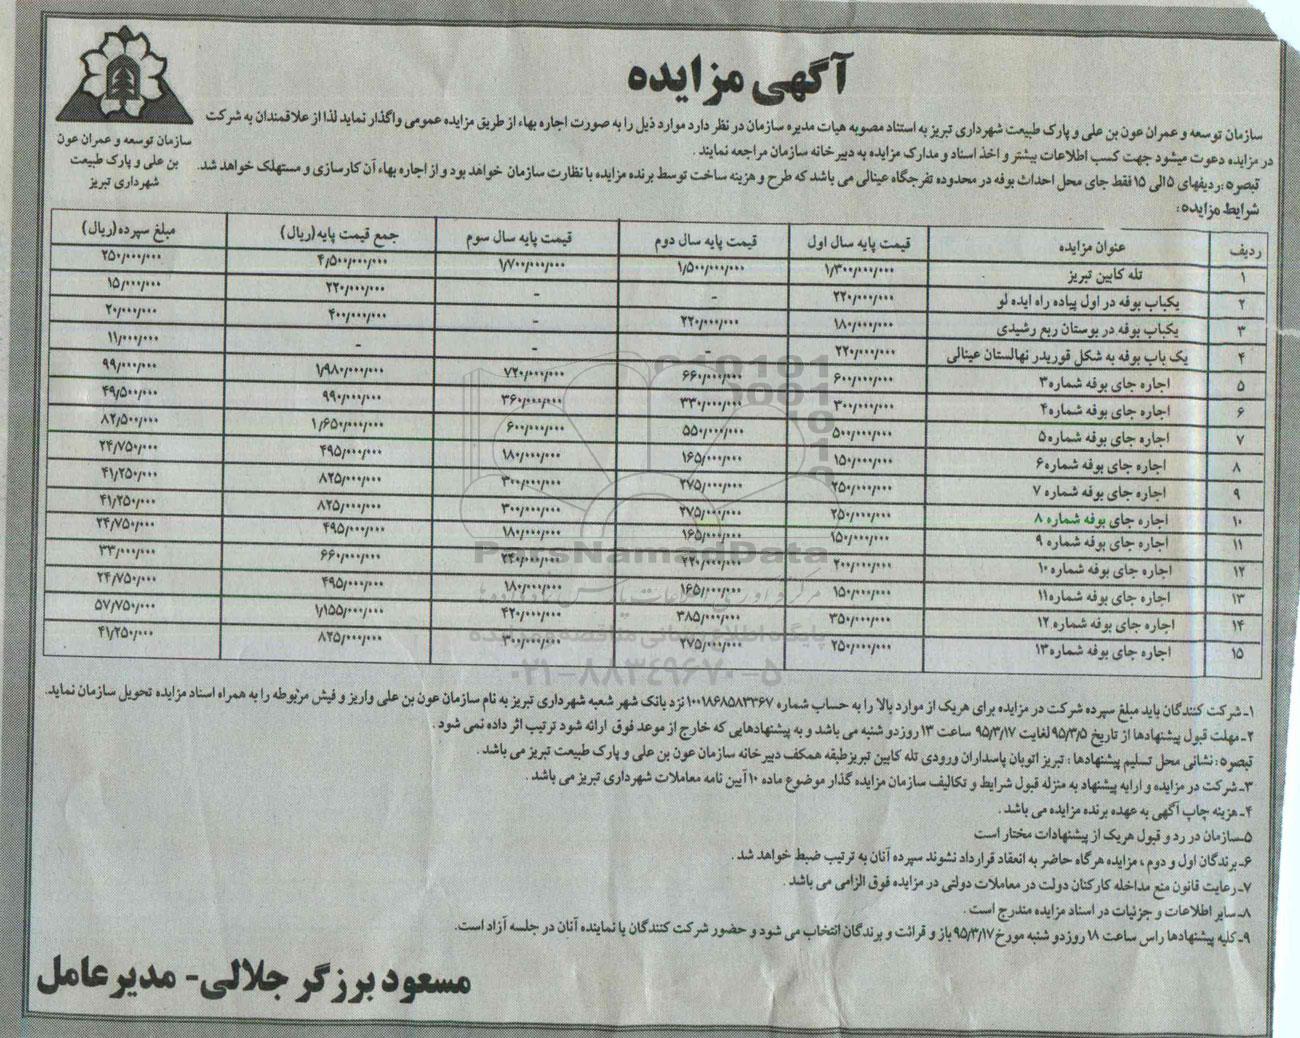 آگهی مزایده
سازمان توسعه و عمران عون
بن علی و پارک طبیعت
شهرداری تبریز
سازمان توسعه و عمران عون بن علی و پارک طبیعت شهرداری تبریز به استناد مصوبه هیات مدیره سازمان در نظر دارد موارد ذیل را به صورت اجاره بهاء از طریق مزایده عمومی واگذار نماید لذا از علاقمندان به شرکت
در مزایده دعوت میشود جهت کسب اطلاعات بیشتر و اخذ اسناد و مدارک مزایده به دبیرخانه سازمان مراجعه نمایند .
تبصره : ردیفهای ۵ الی ۱۵ فقط جای محل احداث بوفه در محدوده تفرجگاه عینالی می باشد که طرح و هزینه ساخت توسط برنده مزایده با نظارت سازمان خواهد بود و از اجاره بهاء آن کارسازی و مستهلک خواهد شد.
شرایط مزایده :
ردیف عنوان مزایده قیمت پایه سال اول قیمت پایه سال دوم قیمت پایه سال سوم جمع قیمت پایه (ریال) مبلغ سپرده (ریال)
۱ تله کابین تبریز ۱/۳۰۰/۰۰۰/۰۰۰ ۱/۵۰۰/۰۰۰/۰۰۰ ۱/۷۰۰/۰۰۰/۰۰۰ ۴/۵۰۰/۰۰۰/۰۰۰ ۲۵۰/۰۰۰/۰۰۰
۲ یکباب بوفه در اول پیاده راه ایده لو ۲۲۰/۰۰۰/۰۰۰ - - ۲۲۰/۰۰۰/۰۰۰ ۱۵/۰۰۰/۰۰۰
۳ یکباب بوفه در بوستان ربع رشیدی ۱۸۰/۰۰۰/۰۰۰ ۲۲۰/۰۰۰/۰۰۰ - ۴۰۰/۰۰۰/۰۰۰ ۲۰/۰۰۰/۰۰۰
۴ یک باب بوفه به شکل قوریدر نهالستان عینالی ۲۲۰/۰۰۰/۰۰۰ - - - ۱۱/۰۰۰/۰۰۰
۵ اجاره جای بوفه شماره ۳ ۶۰۰/۰۰۰/۰۰۰ ۶۶۰/۰۰۰/۰۰۰ ۷۲۰/۰۰۰/۰۰۰ ۱/۹۸۰/۰۰۰/۰۰۰ ۹۹/۰۰۰/۰۰۰
۶ اجاره جای بوفه شماره ۴ ۳۰۰/۰۰۰/۰۰۰ ۳۳۰/۰۰۰/۰۰۰ ۳۶۰/۰۰۰/۰۰۰ ۹۹۰/۰۰۰/۰۰۰ ۴۹/۵۰۰/۰۰۰
۷ اجاره جای بوفه شماره ۵ ۵۰۰/۰۰۰/۰۰۰ ۵۵۰/۰۰۰/۰۰۰ ۶۰۰/۰۰۰/۰۰۰ ۱/۶۵۰/۰۰۰/۰۰۰ ۸۲/۵۰۰/۰۰۰
۸ اجاره جای بوفه شماره ۶ ۱۵۰/۰۰۰/۰۰۰ ۱۶۵/۰۰۰/۰۰۰ ۱۸۰/۰۰۰/۰۰۰ ۴۹۵/۰۰۰/۰۰۰ ۲۴/۷۵۰/۰۰۰
۹ اجاره جای بوفه شماره ۷ ۲۵۰/۰۰۰/۰۰۰ ۲۷۵/۰۰۰/۰۰۰ ۳۰۰/۰۰۰/۰۰۰ ۸۲۵/۰۰۰/۰۰۰ ۴۱/۲۵۰/۰۰۰
۱۰ اجاره جای بوفه شماره ۸ ۲۵۰/۰۰۰/۰۰۰ ۲۷۵/۰۰۰/۰۰۰ ۳۰۰/۰۰۰/۰۰۰ ۸۲۵/۰۰۰/۰۰۰ ۴۱/۲۵۰/۰۰۰
۱۱ اجاره جای بوفه شماره ۹ ۱۵۰/۰۰۰/۰۰۰ ۱۶۵/۰۰۰/۰۰۰ ۱۸۰/۰۰۰/۰۰۰ ۴۹۵/۰۰۰/۰۰۰ ۲۴/۷۵۰/۰۰۰
۱۲ اجاره جای بوفه شماره ۱۰ ۲۰۰/۰۰۰/۰۰۰ ۲۲۰/۰۰۰/۰۰۰ ۲۴۰/۰۰۰/۰۰۰ ۶۶۰/۰۰۰/۰۰۰ ۳۳/۰۰۰/۰۰۰
۱۳ اجاره جای بوفه شماره ۱۱ ۱۵۰/۰۰۰/۰۰۰ ۱۶۵/۰۰۰/۰۰۰ ۱۸۰/۰۰۰/۰۰۰ ۴۹۵/۰۰۰/۰۰۰ ۲۴/۷۵۰/۰۰۰
۱۴ اجاره جای بوفه شماره ۱۲ ۳۵۰/۰۰۰/۰۰۰ ۳۸۵/۰۰۰/۰۰۰ ۴۲۰/۰۰۰/۰۰۰ ۱/۱۵۵/۰۰۰/۰۰۰ ۵۷/۷۵۰/۰۰۰
۱۵ اجاره جای بوفه شماره ۱۳ ۲۵۰/۰۰۰/۰۰۰ ۲۷۵/۰۰۰/۰۰۰ ۳۰۰/۰۰۰/۰۰۰ ۸۲۵/۰۰۰/۰۰۰ ۴۱/۲۵۰/۰۰۰
ParsNamadData
پایگاه اطلاع رسانی مناقصه و مزایده
۰۲۱-۸۸۳۴۹۶۷۰-۵
۱ـ شرکت کنندگان باید مبلغ سپرده شرکت در مزایده برای هریک از موارد بالا را به حساب شماره ۱۰۰۱۸۶۸۵۸۳۳۶۷ نزد بانک شهر شعبه شهرداری تبریز به نام سازمان عون بن علی واریز و فیش مربوطه را به همراه اسناد مزایده تحویل سازمان نماید.
۲ـ مهلت قبول پیشنهادها از تاریخ ۹۵/۳/۵ لغایت ۹۵/۳/۱۷ ساعت ۱۳ روز دو شنبه می باشد و به پیشنهادهایی که خارج از موعد فوق ارائه شود ترتیب اثر داده نمی شود .
تبصره : نشانی محل تسلیم پیشنهادها : تبریز اتوبان پاسداران ورودی تله کابین تبریز طبقه همکف دبیرخانه سازمان عون بن علی و پارک طبیعت تبریز می باشد .
۳ـ شرکت در مزایده و ارایه پیشنهاد به منزله قبول شرایط و تکالیف سازمان مزایده گذار موضوع ماده ۱۰ آیین نامه معاملات شهرداری تبریز می باشد .
۴ـ هزینه چاپ آگهی به عهده برنده مزایده می باشد .
۵ـ سازمان در رد و قبول هریک از پیشنهادات مختار است
۶ـ برندگان اول و دوم ، مزایده هرگاه حاضر به انعقاد قرارداد نشوند سپرده آنان به ترتیب ضبط خواهد شد .
۷ـ رعایت قانون منع مداخله کارکنان دولت در معاملات دولتی در مزایده فوق الزامی می باشد .
۸ـ سایر اطلاعات و جزئیات در اسناد مزایده مندرج است .
۹ـ کلیه پیشنهادها راس ساعت ۱۸ روز دو شنبه مورخ ۹۵/۳/۱۷ باز و قرائت و برندگان انتخاب می شود و حضور شرکت کنندگان یا نماینده آنان در جلسه آزاد است.
مسعود برزگر جلالی - مدیر عامل